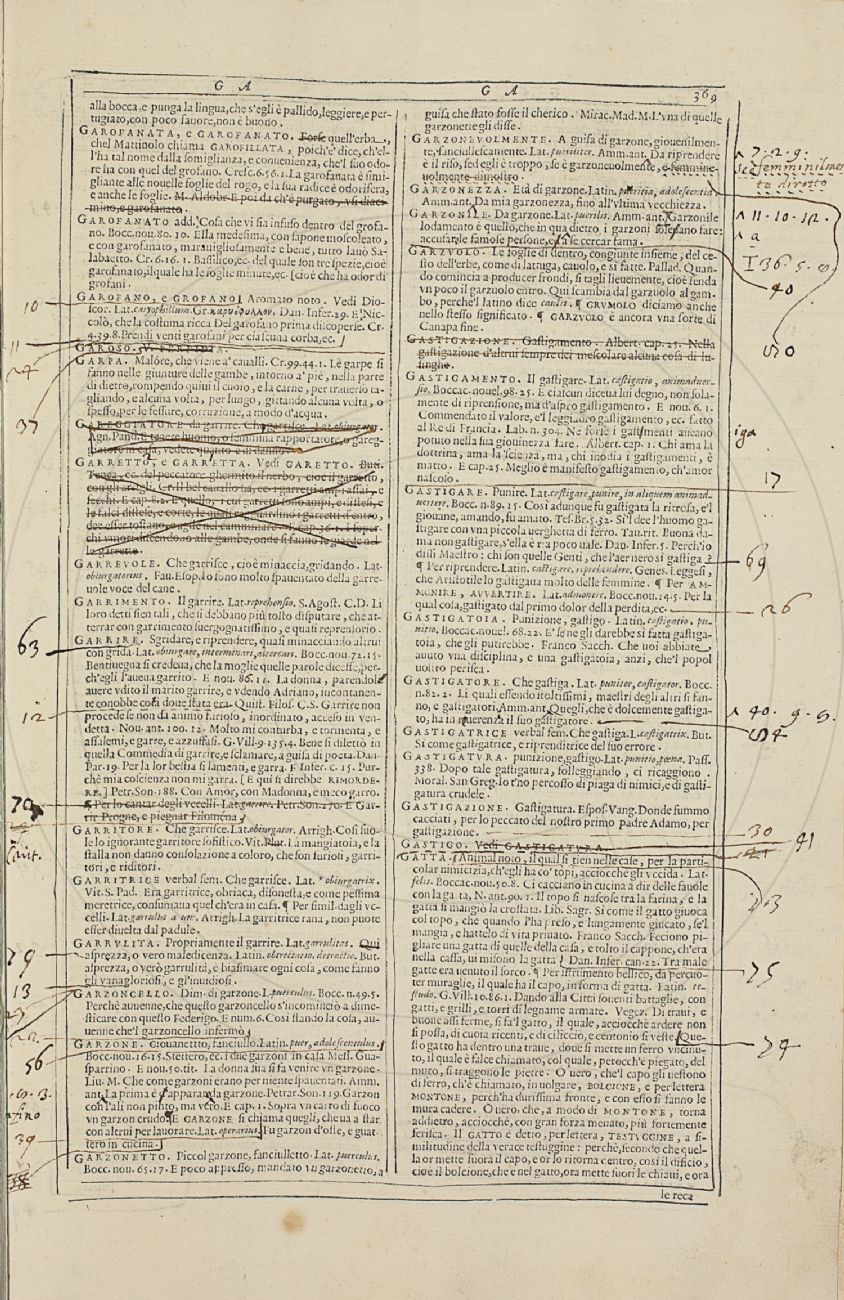 G A
G A
369
alla bocca, e punga la lingua, che s'egli è pallido, leggiere, e per-
tugiato, con poco sauore, non è buono.
GAROFANATA, e GAROFANATO. Forse quell'erba,
chel Mattiuolo chiama GAROFILLATA, poich'e' dice, ch'el-
l'ha tal nome dalla somiglianza, e conuenienza, che'l suo odo-
re ha con quel del grofano. Cresc. 6. 56. 1. La garofanata è simi-
gliante alle nouelle foglie del rogo, e la sua radice è odorifera,
e anche le foglie. M. Aldobr. E poi da ch'è purgato, vsi diaci-
mino, e garofanato.
GAROFANATO add. Cosa che vi sia infuso dentro del grofa-
no. Bocc. nou. 80. 10. Ella medesima, con sapone moscoleato,
e con garofanato, marauigliosamente e bene, tutto lauò Sa-
labaetto. Cr. 6. 16. 1. Bassilico, ec. del quale son tre spezie, cioè
garofanato, il quale ha le foglie minute, ec. [cioè che ha odor di
grofani.
GAROFANO, e GROFANO. Aromato noto. Vedi Dio-
scor. Lat. caryophillum. Gr. καρυόφυλλον. Dan. Infer. 29. E Nic-
colò, che la costuma ricca Del garofano prima discoperse. Cr.
4. 39. 8. Prendi venti garofani per ciascuna corba, ec.
GAROSO. V. PERFIDIA.
GARPA. Malore, che viene a' caualli. Cr. 99. 44. 1. Le garpe si
fanno nelle giunture delle gambe, intorno a' piè, nella parte
di dietro, rompendo quiui il cuoio, e la carne, per trauerso ta-
gliando, e alcuna volta, per lungo, gittando alcuna volta, o
spesso, per le fessure, corruzione, a modo d'acqua.
GAREGGIATORE da garire. Che garrisce. Lat. obiurgator.
Agn. Pand. E tenere huomo, o femmina rapportatore, o gareg-
giatore in casa, vedete quanto e di danno
GARRETTO, e GARRETTA. Vedi GARETTO.
GARREVOLE. Che garrisce, cioè minaccia, gridando. Lat.
obiurgatorius. Fau. Esop. Io sono molto spauentato della garre-
uole voce del cane.
GARRIMENTO. Il garrire. Lat. reprehensio. S. Agost. C. D. Li
loro detti sien tali, che si debbano più tosto disputare, che at-
terrar con garrimento suergognatissimo, e quasi reprensorio.
GARRIRE. Sgridare, e riprendere, quasi minacciando altrui
con grida. Lat. obiurgare, interminari, altercari. Bocc. nou. 72. 15.
Bentiuegna si credeua, che la moglie quelle parole dicesse, per-
ch'egli l'aueua garrito. E nou. 86. 11. La donna, parendole
auere vdito il marito garrire, e vdendo Adriano, incontanen-
te conobbe così doue stata era. Quist. Filos. C. S. Garrire non
procede se non da animo furioso, inordinato, acceso in ven-
detta. Nou. ant. 100. 12. Molto mi conturba, e tormenta, e
assalemi, e garre, e azzuffasi. G. Vill. 9. 135. 4. Bene si dilettò in
quella Commedia di garrire, e sclamare, a guisa di poeta. Dan.
Par. 19. Per la lor bestia si lamenta, e garra. E Infer. c. 15. Pur-
chè mia coscienza non mi garra. [E qui si direbbe RIMORDE-
RE.] Petr. Son. 188. Con Amor, con Madonna, e meco garro.
¶ Per lo cantar degli vccelli. Lat. garrire. Petr. Son. 270. E Gar-
rir Progne, e piagner Filomena
GARRITORE. Che garrisce. Lat. obiurgator. Arrigh. Così suo-
le lo ignorante garritore sofistico. Vit. Plut. La mangiatoia, e la
stalla non danno consolazione a coloro, che son furiosi, garri-
tori, e riditori.
GARRITRICE verbal fem. Che garrisce. Lat. *obiurgatrix.
Vit. S. Pad. Era garritrice, obriaca, disonesta, e come pessima
meretrice, consumaua quel ch'era in casa. ¶ Per simil. dagli vc-
celli. Lat. garrulus a um. Arrigh. La garritrice rana, non puote
esser diuelta dal padule.
GARRVLITA. Propriamente il garrire. Lat. garrulitas. Qui
asprezza, o vero maledicenza. Latin. obtrectatio, detractio. But.
asprezza, o verò garrulità, e biasimare ogni cosa, come fanno
gli vanagloriosi, e gl'inuidiosi.
GARZONCELLO. Dim. di garzone. L. puerculus. Bocc. n. 49. 5.
Perchè auuenne, che questo garzoncello s'incominciò a dime-
sticare con questo Federigo. E num. 6. Così stando la cosa, au-
uenne che'l garzoncello infermò
GARZONE. Giouanetto, fanciullo. Latin. puer, adolescentulus.
Bocc. nou. 16. 15. Stettero, ec. i due garzoni in casa Mess. Gua-
sparrino. E nou. 50. tit. La donna sua si fa venire vn garzone.
Liu. M. Che come garzoni erano per niente spauentati. Amm.
ant. La prima è apparar da garzone. Petrar. Son. 119. Garzon
con l'ali non pinto, ma viuo. E cap. 1. Sopra vn carro di fuoco
vn garzon crudo. E GARZONE si chiama quegli, che va a star
con altrui per lauorare. Lat. operarius. Fu garzon d'oste, e guat-
tero in cucina.
GARZONETTO. Piccol garzone, fanciulletto. Lat. puerculus.
Bocc. nou. 65. 17. E poco appresso, mandato vn garzonetto, a
guisa che stato fosse il cherico. Mirac. Mad. M. L'vna di quelle
garzonette gli disse.
GARZONEVOLMENTE. A guisa di garzone, giouenilmen-
te, fanciullescamente. Lat. pueriliter. Amm. ant. Da riprendere
è il riso, sed egli è troppo, se è garzoneuolmente, e femmine-
uolmente dimoltro.
GARZONEZZA. Età di garzone. Latin. pueritia, adolescentia
Amm. ant. Da mia garzonezza, fino all'vltima vecchiezza.
GARZONILE. Da garzone. Lat. puerilis. Amm. ant. Garzonile
lodamento è quello, che in qua dietro i garzoni solesano fare:
accusar le famose persone, e a le cercar fama.
GARZVOLO. Le foglie di dentro, congiunte insieme, del ce-
sto dell'erbe, come di lattuga, cauolo, e sì fatte. Pallad. Quan-
do comincia a producer frondi, si tagli lieuemente, cioè fenda
vn poco il garzuolo entro. Qui scambia dal garzuolo al gam-
bo, perchè'l latino dice caulis. ¶ GRVMOLO diciamo anche
nello stesso significato. ¶ GARZVOLO è ancora vna sorte di
Canapa fine.
GASTIGAZIONE. Gastigamento. Albert. cap. 25. Nella
gastigazione d'altrui sempre dei mescolare alcuna cosa di lu-
singhe.
GASTIGAMENTO. Il gastigare. Lat. castigatio, animaduer-
sio. Boccac. nouel. 98. 25. E ciascun diceua lui degno, non sola-
mente di riprensione, ma d'aspro gastigamento. E nou. 6. 1.
Commendato il valore, e'l leggiadro gastigamento, ec. fatto
al Re di Francia. Lab. n. 304. Ne forse i gastigamenti aueano
potuto nella sua giouinezza fare. Albert. cap. 1. Chi ama la
dottrina, ama la scienza, ma, chi inodia i gastigamenti, è
matto. E cap. 25. Meglio è manifesto gastigamento, ch'amor
nascoso.
GASTIGARE. Punire. Lat. castigare, punire, in aliquem animad-
uertere. Bocc. n. 89. 15. Così adunque fu gastigata la ritrosa, e'l
giouane, amando, fu amato. Tes. Br. 5. 32. Sì l'dee l'huomo ga-
stigare con vna piccola verghetta di ferro. Tau. rit. Buona da-
ma non gastigare, s'ella è tra poco vale. Dan. Infer. 5. Perch'io
dissi Maestro: chi son quelle Genti, che l'aer nero sì gastiga?
¶ Per riprendere. Latin. castigare, reprehendere. Genes. Leggesi,
che Aristotile lo gastigaua molto delle femmine. ¶ Per AM-
MONIRE, AVVERTIRE. Lat. admonere. Bocc. nou. 14. 5. Per la
qual cosa, gastigato dal primo dolor della perdita, ec.
GASTIGATOIA. Punizione, gastigo. Latin. castigatio, pu-
nitio. Boccac. nouel. 68. 22. E' se ne gli darebbe sì fatta gastiga-
toia, che gli putirebbe. Franco Sacch. Che voi abbiate
auuto vna disciplina, e una gastigatoia, anzi, che'l popol
vostro perisca.
GASTIGATORE. Che gastiga. Lat. punitor, castigator. Bocc.
n. 82. 2. Li quali essendo stoltissimi, maestri degli altri si fan-
no, e gastigatori. Amm. ant. Quegli, che è dolcemente gastiga-
to, ha in reuerenza il suo gastigatore.
GASTIGATRICE verbal fem. Che gastiga. L. castigatrix. But.
Si come gastigatrice, e riprenditrice del suo errore.
GASTIGATVRA. punizione, gastigo. Lat. punitio, pœna. Pass.
338. Dopo tale gastigatura, folleggiando, ci ricaggiono.
Moral. San Greg. Io t'no percosso di piaga di nimici, e di gasti-
gatura crudele.
GASTIGAZIONE. Gastigatura. Espos. Vang. Donde summo
cacciati, per lo peccato del nostro primo padre Adamo, per
gastigazione.
GASTIGO. Vedi GASTIGATVRA.
GATTA. Animal noto, il qual si tien nelle case, per la parti-
colar nimicizia, ch'egli ha co' topi, acciocchè gli vccida. Lat.
felis. Boccac. nou. 50. 8. Ci cacciano in cucina a dir delle fauole
con la gatta, N. ant. 90. 1. Il topo si nascose tra la farina, e la
gatta si mangiò la crostata. Lib. Sagr. Sì come il gatto giuoca
col topo, che quando l'ha preso, e lungamente giucato, se'l
mangia, e hattelo di vita priuato. Franco Sacch. Feciono pi-
gliare una gatta di quelle della casa, e tolto il cappone, ch'era
nella cassa, ui misono la gatta. Dan. Infer. can. 22. Tra male
gatte era venuto il sorco. ¶ Per istrumento bellico, da percuo-
ter muraglie, il quale ha il capo, in forma di gatta. Latin. te-
studo. G. Vill. 10. 86. 1. Dando alla Città souenti battaglie, con
gatti, e grilli, e torri di legname armate. Vegez. Di traui, e
buone assi ferme, si fa'l gatto, il quale, acciocchè ardere non
si possa, di cuoia ricenti, e di ciliccio, e centonio si veste. Que-
sto gatto ha dentro una traue, doue si mette un ferro vncinu-
to, il quale è falce chiamato, col quale, perocch'è piegato, del
muro, si traggono le pietre. O uero, che'l capo gli uestono
di ferro, ch'è chiamato, in uolgare, BOLCIONE, e per lettera
MONTONE, perch'ha durissima fronte, e con esso si fanno le
mura cadere. O uero, che, a modo di MONTONE, torna
addietro, acciocchè, con gran forza menato, più fortemente
ferisca. Il GATTO è detto, per lettera, TESTUGGINE, a si-
militudine della verace testuggine: perchè, secondo che quel-
la or mette fuora il capo, e or lo ritorna dentro, così il dificio,
cioè il bolcione, che e nel gatto, ora mette fuori le chiaui, e ora
le reca
10
11
37
63
12
79
13
56
39
7. 2. 9.
femminilmen
te dirotto
11. 10. 12.
a
I 36. 5. 8
40
50
iga
17
69
26
40. 9. 6.
54
30
41
43
75
74